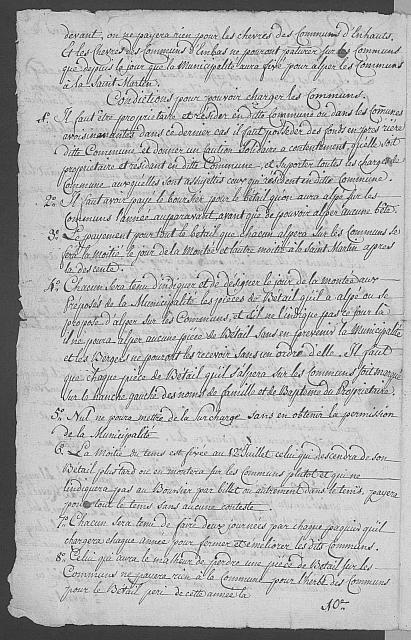 devant, on ne payera rien pour les chevres des Communs d'Enhauts,
Et les Chevres des Communs d'Enbas ne pouront paturer sur les Communs
que depuis le jour que la Municipalité aura fixé pour alper les Communs
à la Saint Martin.
Condictions pour pouvoir charger les Communs.
1o. Il faut être proprietaire et résider en ditte Commune ou dans les Comunes
avoisinantes dans ce dernier cas il faut posseder des fonds en
ditte Commune et donner un caution solidaire à contentement, qu'elle soit
proprietaire et résident en ditte Commune, et suporter toutes les charges de
Commune auxquelles sont assujettis ceux qui résident en ditte Commune.
2o. Il faut avoir payé le boursier pour le bétail qu'on aura alpé sur les
Communs l'année auparavant, avant que de pouvoir alper aucune bête.
3o. Le payement pour tout le betail que chacun alpera sur les Communs se
fera la moitié le jour de la Montée et l'autre moitié à la Saint Martin après
la descente.
4o. Chacun sera tenu d'indiquer et de désigner le jour de la montée aux
Préposés de la Municipalité les pièces de Bétail qu'il a alpé ou se
propose d'alper sur les Communs, et s'il ne l'indique pas ce jour là
ne poura alper aucune pièce de Bétail sans en prevenir la Municipalité
et les Bergers ne pouront les recevoir sans un ordre d'elle. Il faut
que chaque pièce de Bétail qu'il alpera sur les Communs soit marqué
sur la hanche gauche des noms de famille et de Baptême du Proprietaire.
5o. Nul ne poura metre de la surcharge sans en obtenir la permission
de la Municipalité
6. La moitié du tems est fixée au 12e Juillet celui qui descendra de son
Bétail plus tard ou en montera sur les Communs plutot et qui ne
l'indiquera pas au Boursier par billet ou autrement dans le tems, payera
pour tout le tems sans aucune conteste.
7o. Chacun sera tenu de faire deux journées par chaque paquier qu'il
chargera chaque année pour fermer et améliorer les dits Communs.
8o. Celui qui aura le malheur de perdre une pièce de Bétail sur les
Communs ne payera rien à la Commune pour l'herbe des Communs
pour le Bétail peri de cette année là